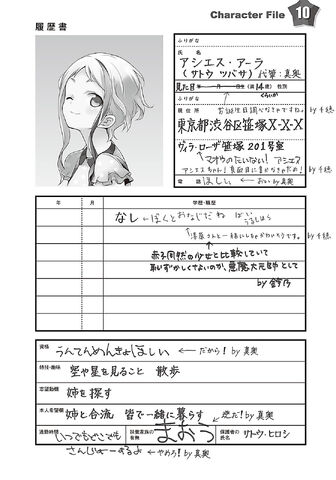 Character File 10
履歴書
ふりがな
氏名
アシエス・アーラ
(サトウ ツバサ) 代筆・真奥
見た目 年 月 日生 (満14歳) 性別
くらいか
ふりがな
現住所
お誕生日調べなきゃですね。by千穂
東京都渋谷区笹塚X-X-X
ヴィラ・ローザ笹塚 201号室
アシエスちゃん! 真面目に書かなきゃだめ! by千穂
電話 ほしい ← おい by真奥
年 月 学歴・職歴
なし ← ぼくとおなじだね ばい うるしはら
漆原さんと一緒にしちゃかわいそうです。by千穂
赤子同然の少女と比較していて
恥ずかしくないのか、悪魔大元帥として
by鈴乃
資格 うんてんめんきょほしい ← だから! by真奥
特技・趣味 空や星を見ること 散歩
志望動機 姉を探す
本人希望欄 姉と合流 皆で一緒に暮らす ← 逆だ! by真奥
通勤時間 いつでもどこでも
扶養家族の有無 まおう
保護者の氏名 サトウ・ヒロシ
さんじょーするよ ← やめろ! by真奥